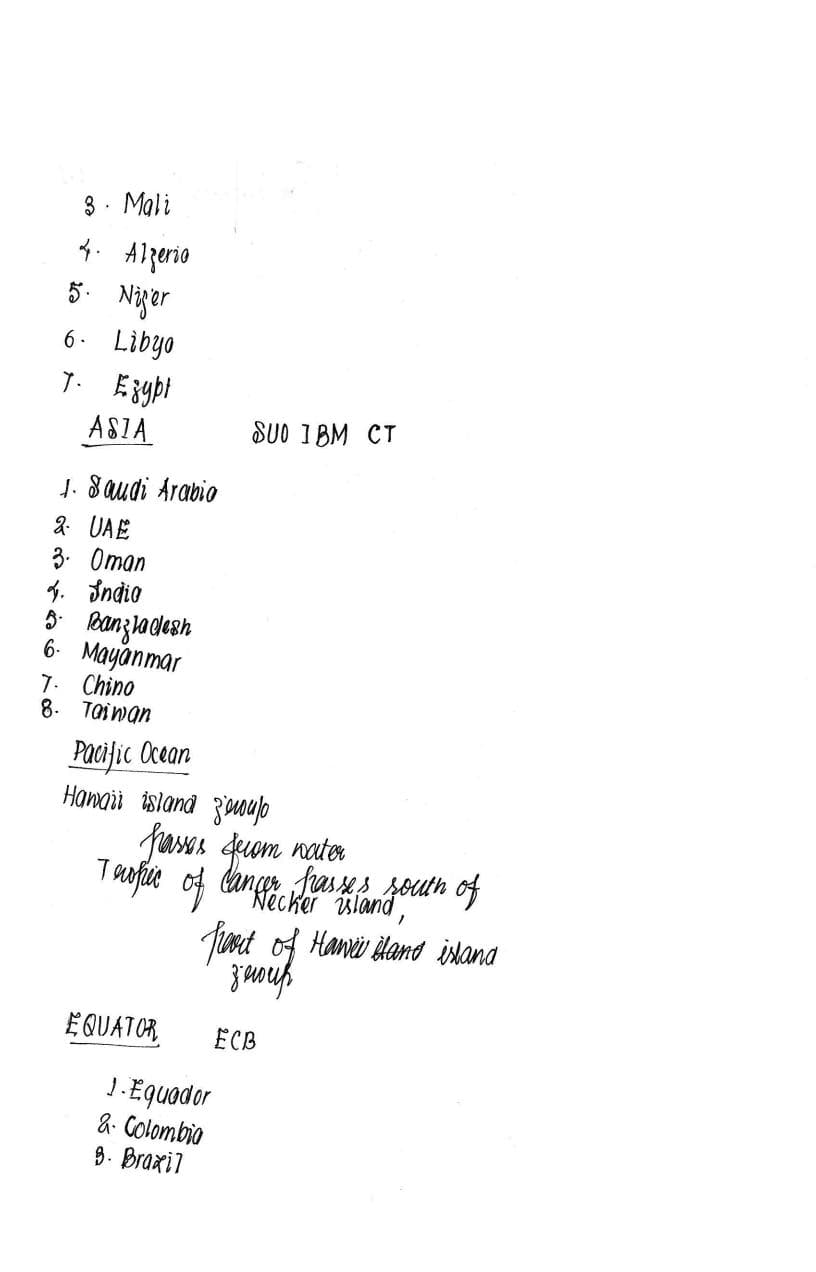 3. Mali
4. Algeria
5. Niger
6. Libya
7. Egypt
ASIA SUO IBM CT
1. Saudi Arabia
2. UAE
3. Oman
4. India
5. Bangladesh
6. Mayanmar
7. China
8. Taiwan
Pacific Ocean
Hawaii island group
passes from water
Tropic of Cancer passes south of
Necker island,
part of Hawaii island
group
EQUATOR ECB
1. Equador
2. Colombia
3. Brazil